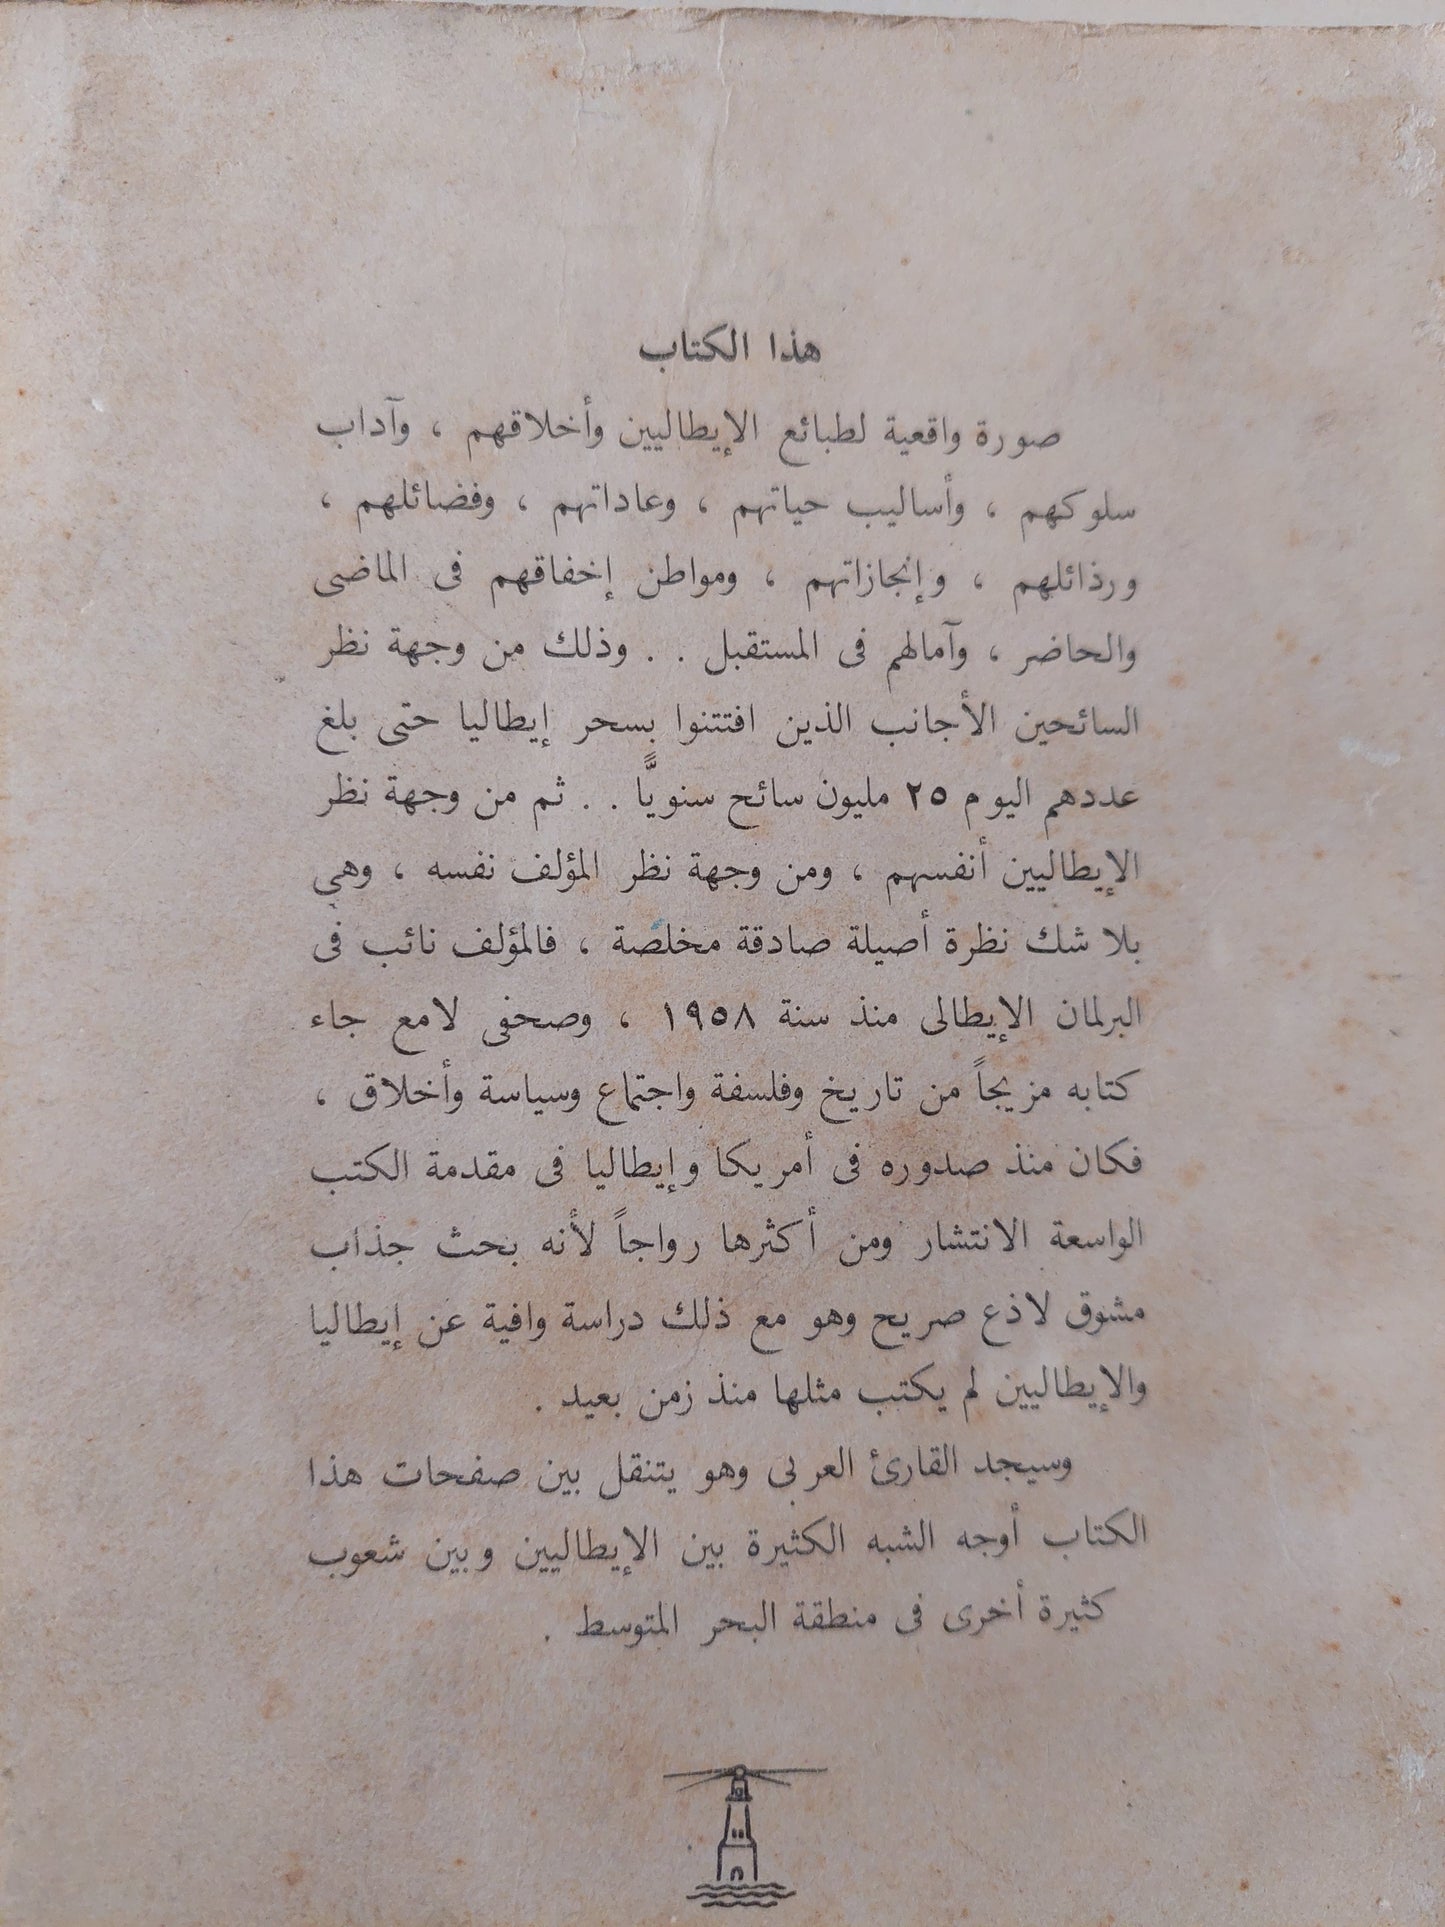 هذا الكتاب
صورة واقعية لطبائع الإيطاليين وأخلاقهم ، وآداب
سلوكهم ، وأساليب حياتهم ، وعاداتهم ، وفضائلهم ،
ورذائلهم ، وإنجازاتهم ، ومواطن إخفاقهم فى الماضى
والحاضر ، وآمالهم فى المستقبل . . وذلك من وجهة نظر
السائحين الأجانب الذين افتتنوا بسحر إيطاليا حتى بلغ
عددهم اليوم ٢٥ مليون سائح سنويًّا . . ثم من وجهة نظر
الإيطاليين أنفسهم ، ومن وجهة نظر المؤلف نفسه ، وهى
بلا شك نظرة أصيلة صادقة مخلصة ، فالمؤلف نائب فى
البرلمان الإيطالى منذ سنة ١٩٥٨ ، وصحفى لامع جاء
كتابه مزيجاً من تاريخ وفلسفة واجتماع وسياسة وأخلاق ،
فكان منذ صدوره فى أمريكا وإيطاليا فى مقدمة الكتب
الواسعة الانتشار ومن أكثرها رواجاً لأنه بحث جذاب
مشوق لاذع صريح وهو مع ذلك دراسة وافية عن إيطاليا
والإيطاليين لم يكتب مثلها منذ زمن بعيد .
وسيجد القارئ العربى وهو يتنقل بين صفحات هذا
الكتاب أوجه الشبه الكثيرة بين الإيطاليين وبين شعوب
كثيرة أخرى فى منطقة البحر المتوسط .